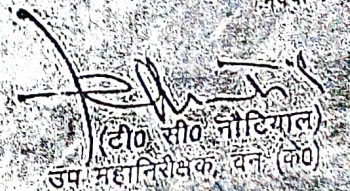 (टी० सी० नौटियाल)
उप महानिरीक्षक, वन (के०)